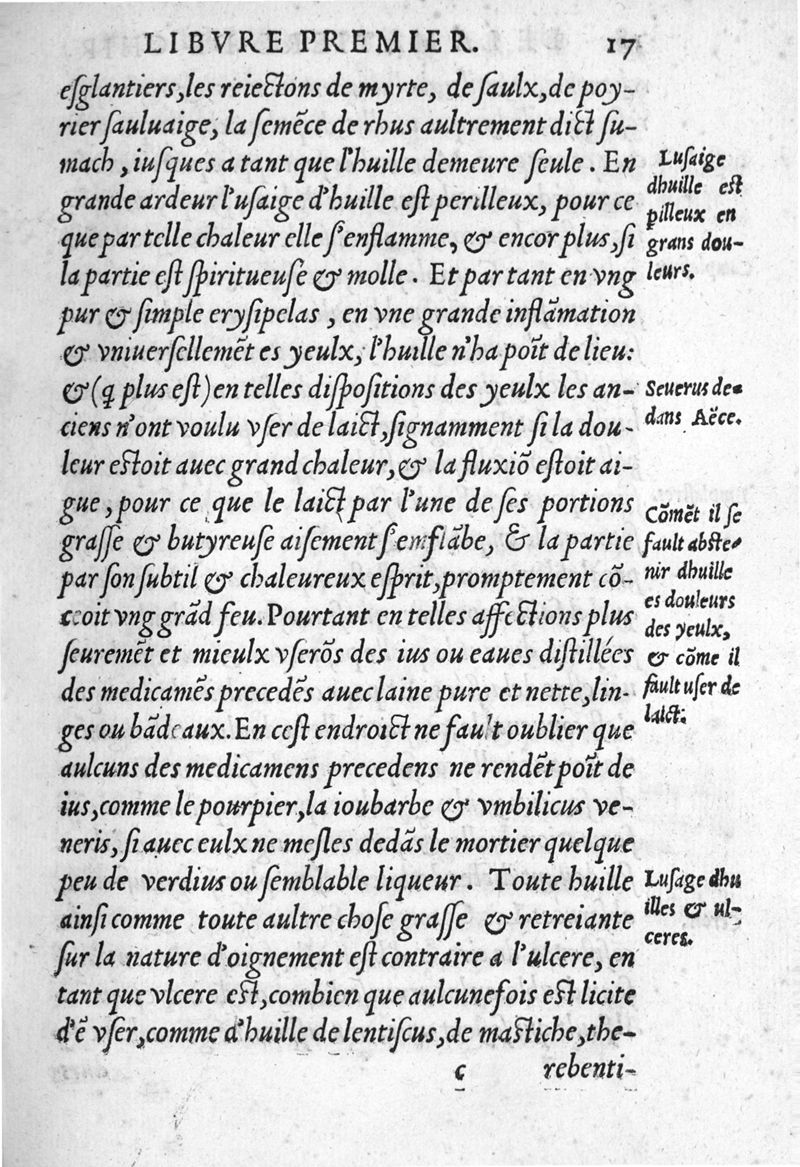 LIBVRE PREMIER. 17
eſglantiers,les reiectons de myrte, de ſaulx,de poy-
rier ſauluaige, la ſemẽce de rhus aultrement dict ſu-
mach , iuſques a tant que l'huille demeure ſeule . En
grande ardeur l'uſaige d'huille eſt perilleux, pour ce
que par telle chaleur elle ſ'enflamme, & encor plus, ſi
la partie eſt ſpiritueuſe & molle . Et par tant en vng
pur & ſimple eryſipelas , en vne grande inflãmation
& vniuerſellemẽt es yeulx, l'huille n'ha poĩt de lieu:
&(q plus eſt) en telles diſpoſitions des yeulx les an-
ciens n'ont voulu vſer de laict,ſignamment ſi la dou-
leur eſtoit auec grand chaleur,& la fluxiõ eſtoit ai-
gue , pour ce que le laict par l'une de ſes portions
graſſe & butyreuſe aiſement ſ'emflãbe, & la partie
par ſon ſubtil & chaleureux eſprit,promptement cõ-
ccoit vng grãd feu. Pourtant en telles affections plus
ſeuremẽt et mieulx vſerõs des ius ou eaues diſtillées
des medicamẽs precedẽs auec laine pure et nette,lin-
ges ou bãdeaux. En ceſt endroict ne fault oublier que
aulcuns des medicamens precedens ne rendẽt poĩt de
ius,comme le pourpier,la ioubarbe & vmbilicus ve-
neris, ſi auec eulx ne meſles dedãs le mortier quelque
peu de verdius ou ſemblable liqueur . Toute huille
ainſi comme toute aultre choſe graſſe & retreiante
ſur la nature d'oignement eſt contraire a l'ulcere, en
tant que vlcere eſt,combien que aulcunefois eſt licite
d'ẽ vſer,comme d'huille de lentiſcus,de maſtiche,the-
c rebenti-
Luſaige
dhuille eſt
pilleux en
grans dou-
leurs.
Seuerus de-
dans Aëce.
Cõmẽt il ſe
fault abſte-
nir dhuille
es douleurs
des yeulx,
& cõme il
fault uſer de
laict:
Luſage dhu
illes & ul-
ceres.